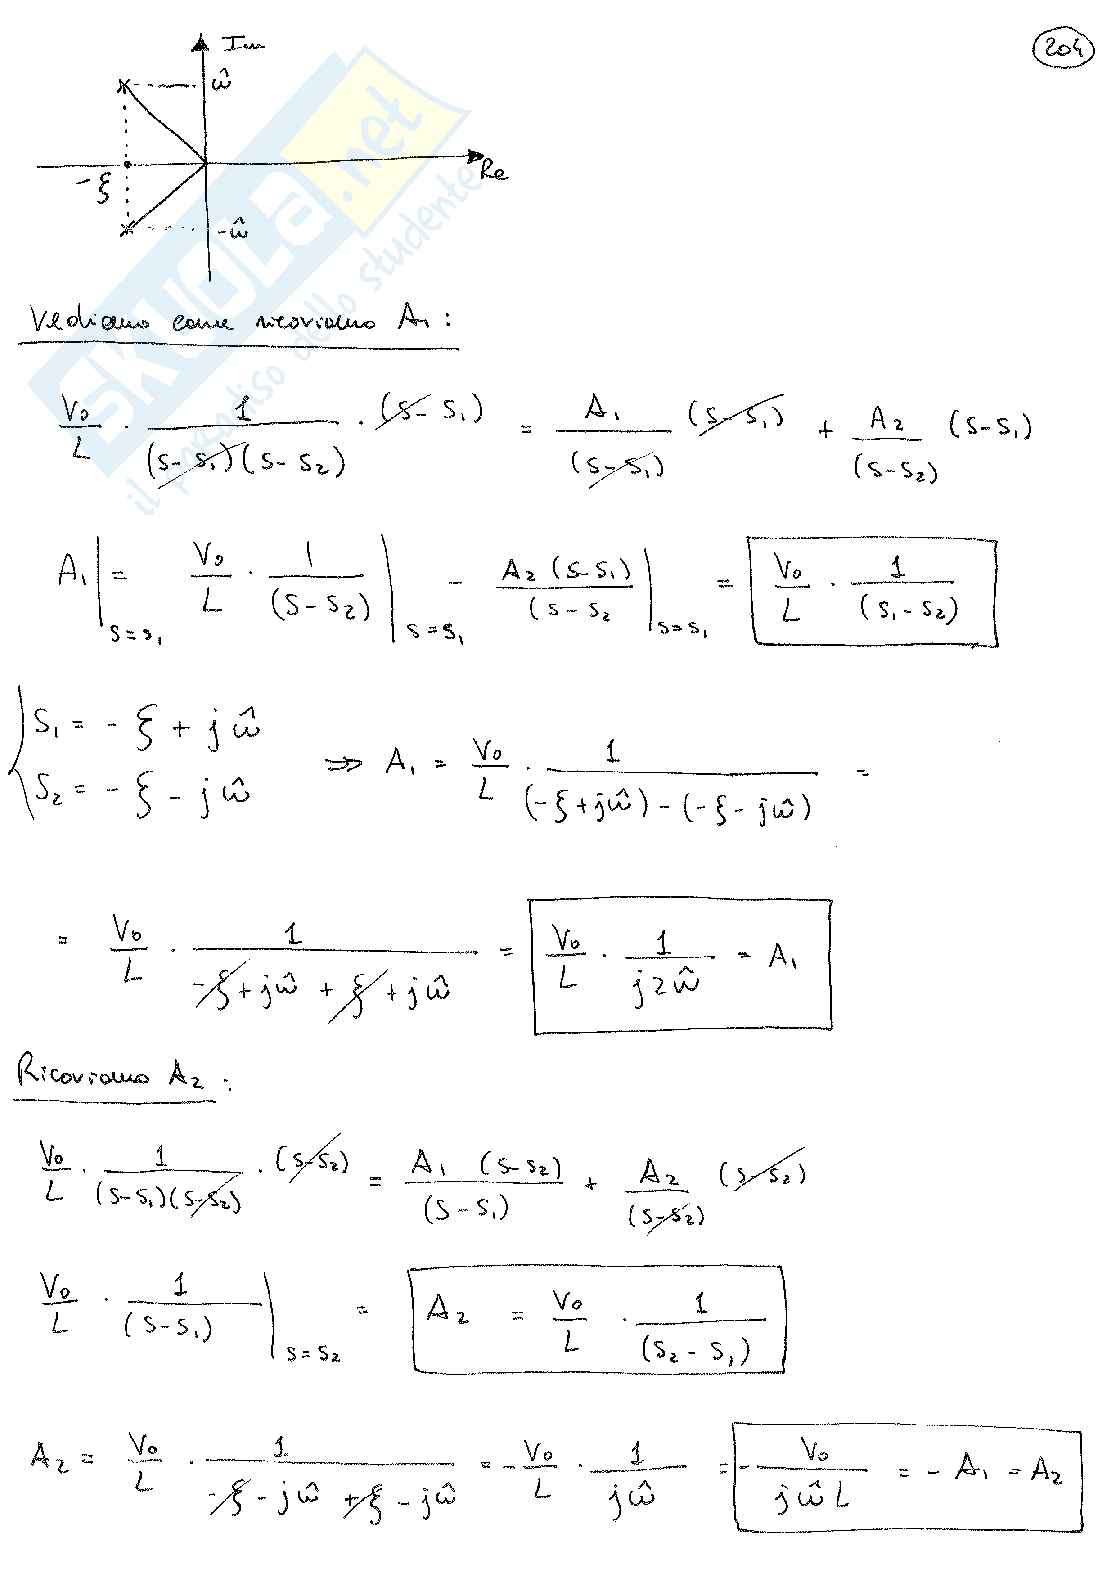 204
Im
ω̂
Re
-ξ
-ω̂
SKUOLA.net
il paradiso dello studente
Vediamo come ricaviamo A₁ :
V₀/L · 1/((s-s₁)(s-s₂)) · (s-s₁) = A₁/(s-s₁) (s-s₁) + A₂/(s-s₂) (s-s₁)
A₁|s=s₁ = V₀/L · 1/(s-s₂)|s=s₁ - A₂(s-s₁)/(s-s₂|s=s₁ = V₀/L · 1/(s₁-s₂)
s₁ = -ξ + jω̂
s₂ = -ξ - jω̂
⇒ A₁ = V₀/L · 1/((-ξ+jω̂)-(-ξ-jω̂)) =
= V₀/L · 1/(-ξ+jω̂+ξ+jω̂) = V₀/L · 1/(j2ω̂) = A₁
Ricaviamo A₂ :
V₀/L · 1/((s-s₁)(s-s₂)) · (s-s₂) = A₁(s-s₂)/(s-s₁) + A₂/(s-s₂) (s-s₂)
V₀/L · 1/(s-s₁)|s=s₂ = A₂ = V₀/L · 1/(s₂-s₁)
A₂ = V₀/L · 1/(-ξ-jω̂+ξ-jω̂) = -V₀/L · 1/(jω̂) = -V₀/(jω̂L) = -A₁ = A₂